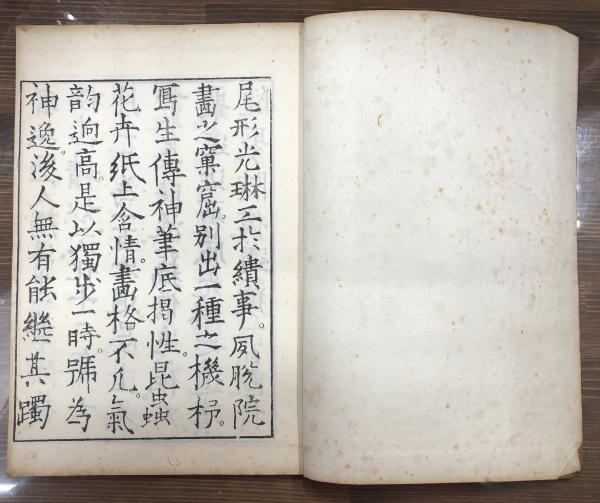 尾形光琳工於繢事。夙脫院
畵之窠窟。別出一種之機杼。
寫生傳神筆底揭性。昆蟲
花卉紙上含情。畵格不凢。氣
韵逈高。是以獨步一時。號為
神逸。後人無有能繼其躅